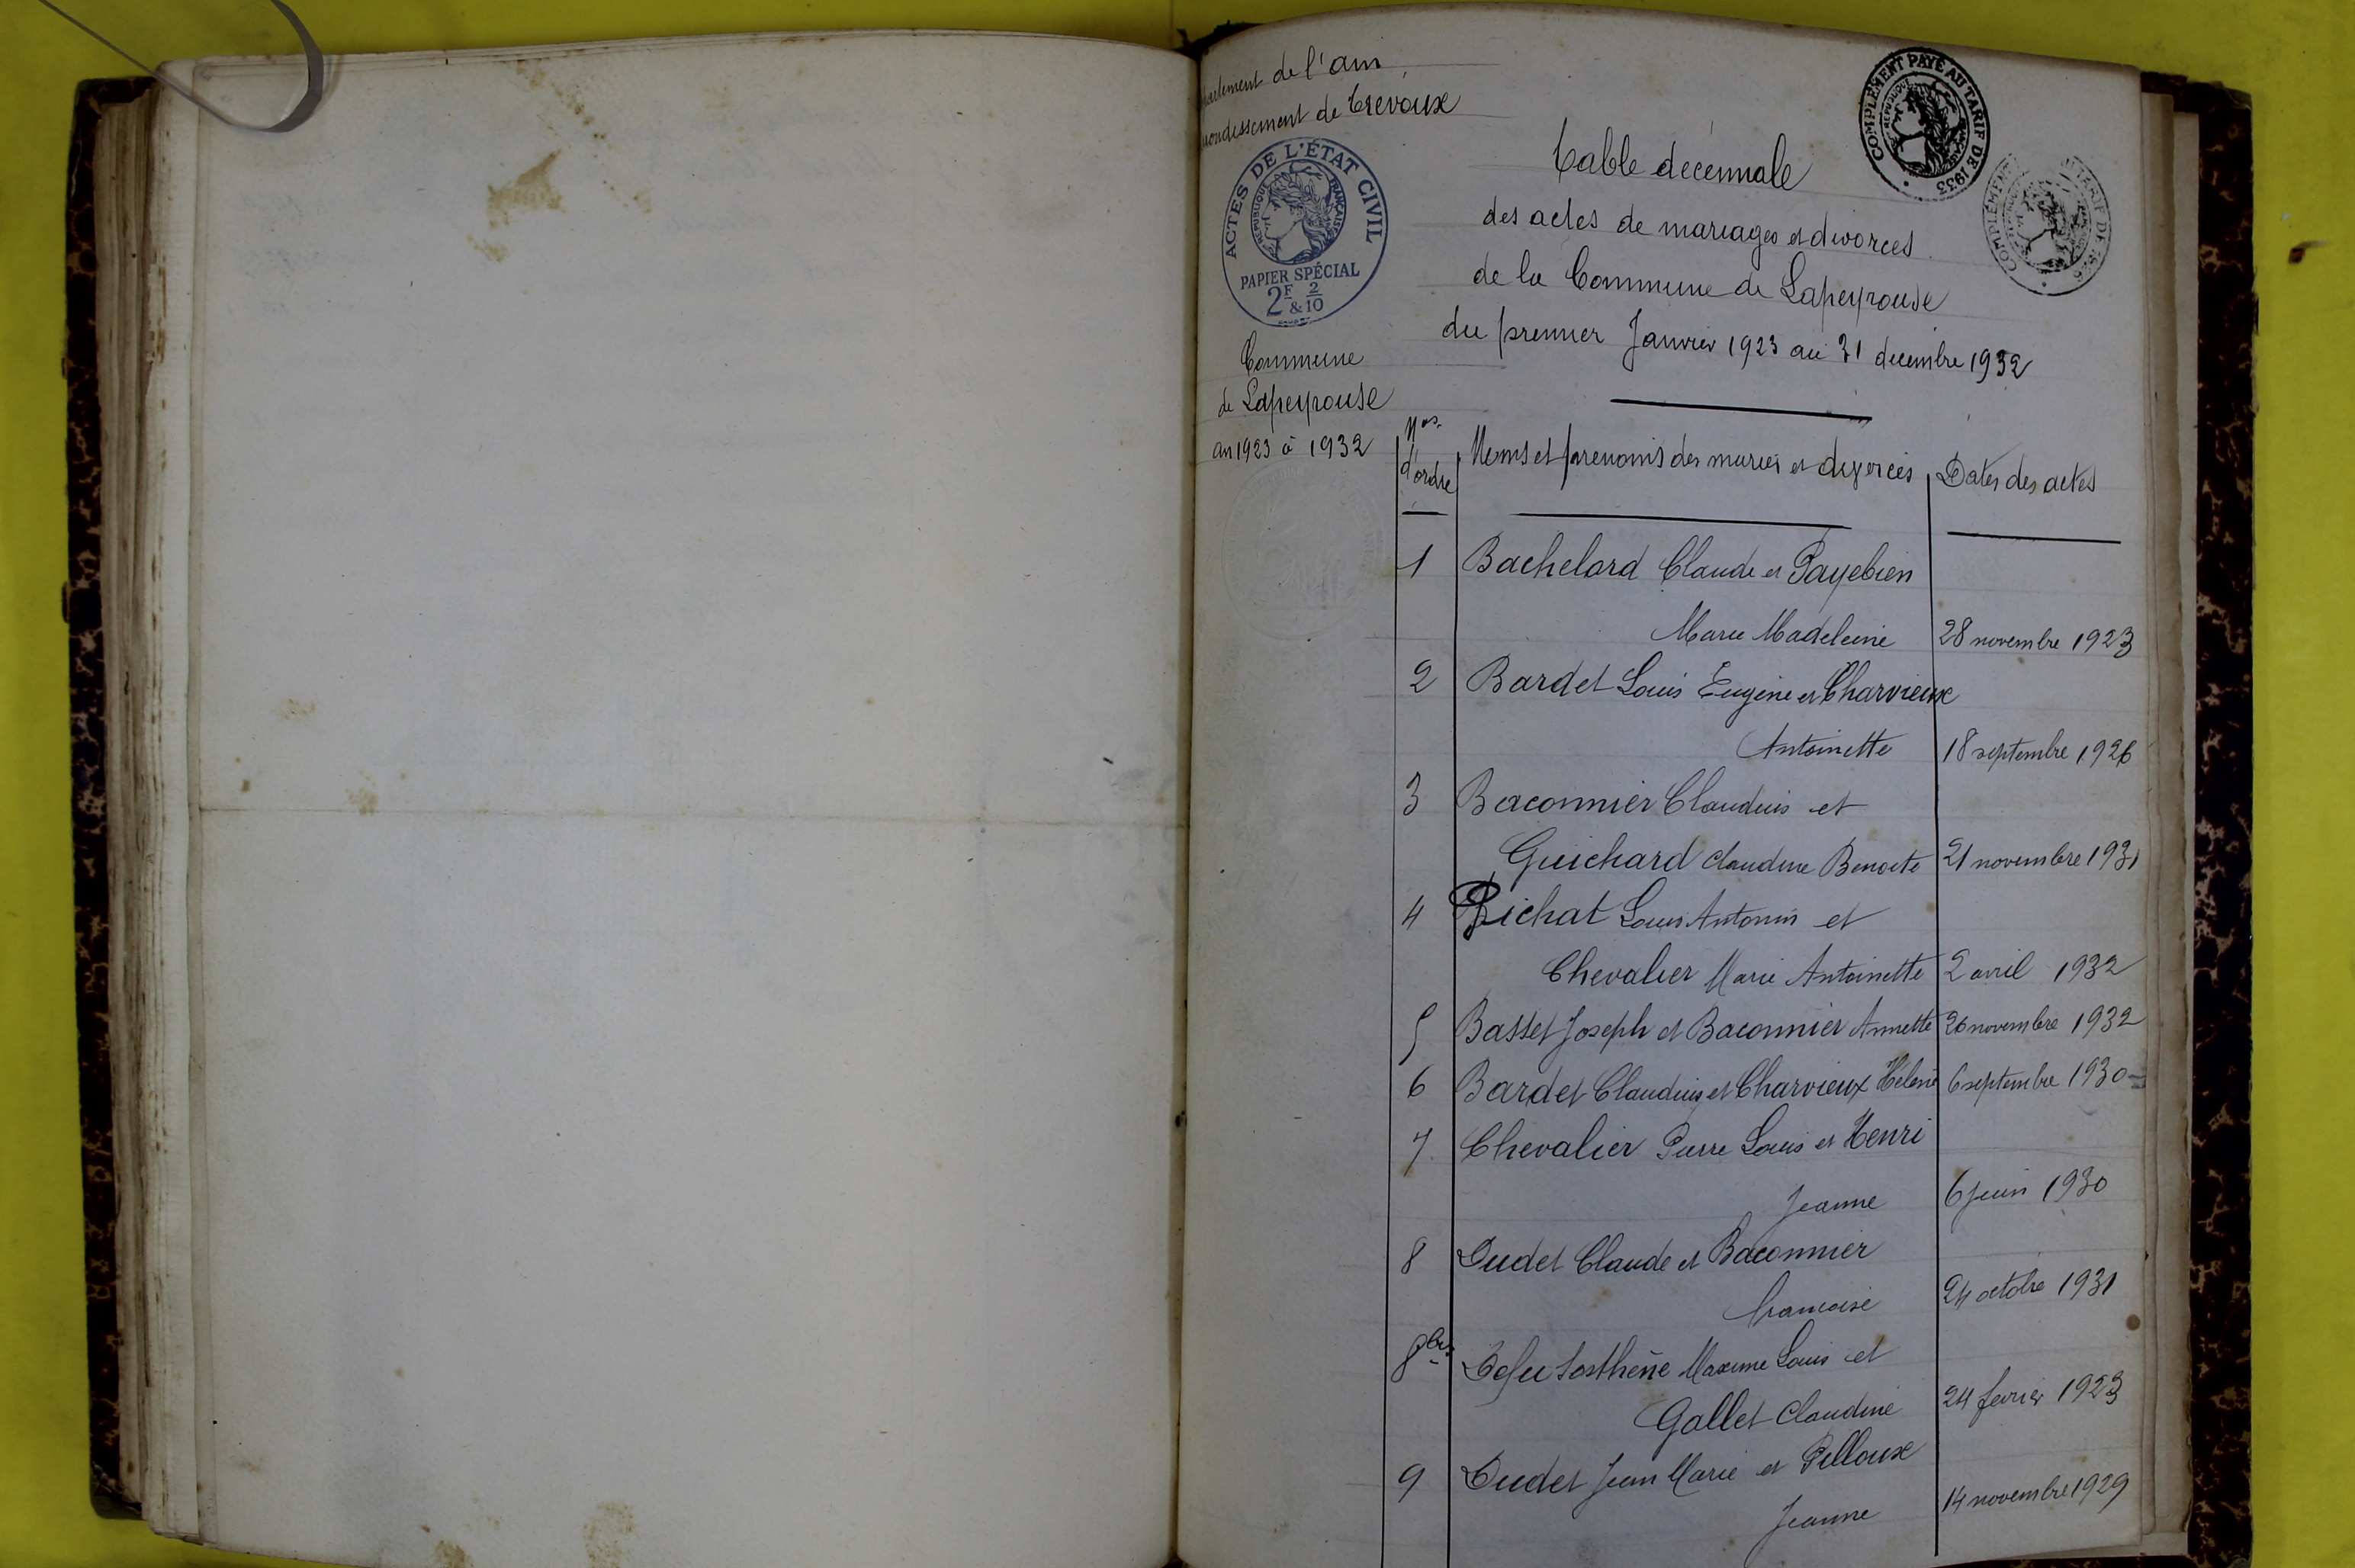 de l'ain
de Trevoux
ACTES DE L'ÉTAT CIVIL
RÉPUBLIQUE FRANÇAISE
PAPIER SPÉCIAL
2F & 2/10
COMPLÉMENT PAYÉ AU TARIF DE 1933
COMPLÉMENT TARIF DE
Table décennale
des actes de mariages et divorces
de la Commune de Lapeyrouse
du premier Janvier 1923 au 31 decembre 1932
Commune
de Lapeyrouse
an 1923 à 1932
Nos d'ordre
Noms et prenoms des mariés et divorcés
Dates des actes
1 Bachelard Claude et Payebien
Marie Madeleine 28 novembre 1923
2 Bardet Louis Eugène et Charvieux
Antoinette 18 septembre 1926
3 Baconnier Claudius et
Guichard Claudine Benoite 21 novembre 1931
4 Bichat Louis Antonin et
Chevalier Marie Antoinette 2 avril 1932
5 Basset Joseph et Baconnier Annette 26 novembre 1932
6 Bardet Claudius et Charvieux Helene 6 septembre 1930
7 Chevalier Pierre Louis et Henri
Jeanne 6 juin 1930
8 Dudet Claude et Baconnier
Francoise 24 octobre 1931
8 bis Sosthène Maxime Louis et
Gallet Claudine 24 fevrier 1923
9 Dudet Jean Marie et Pelloux
Jeanne 14 novembre 1929